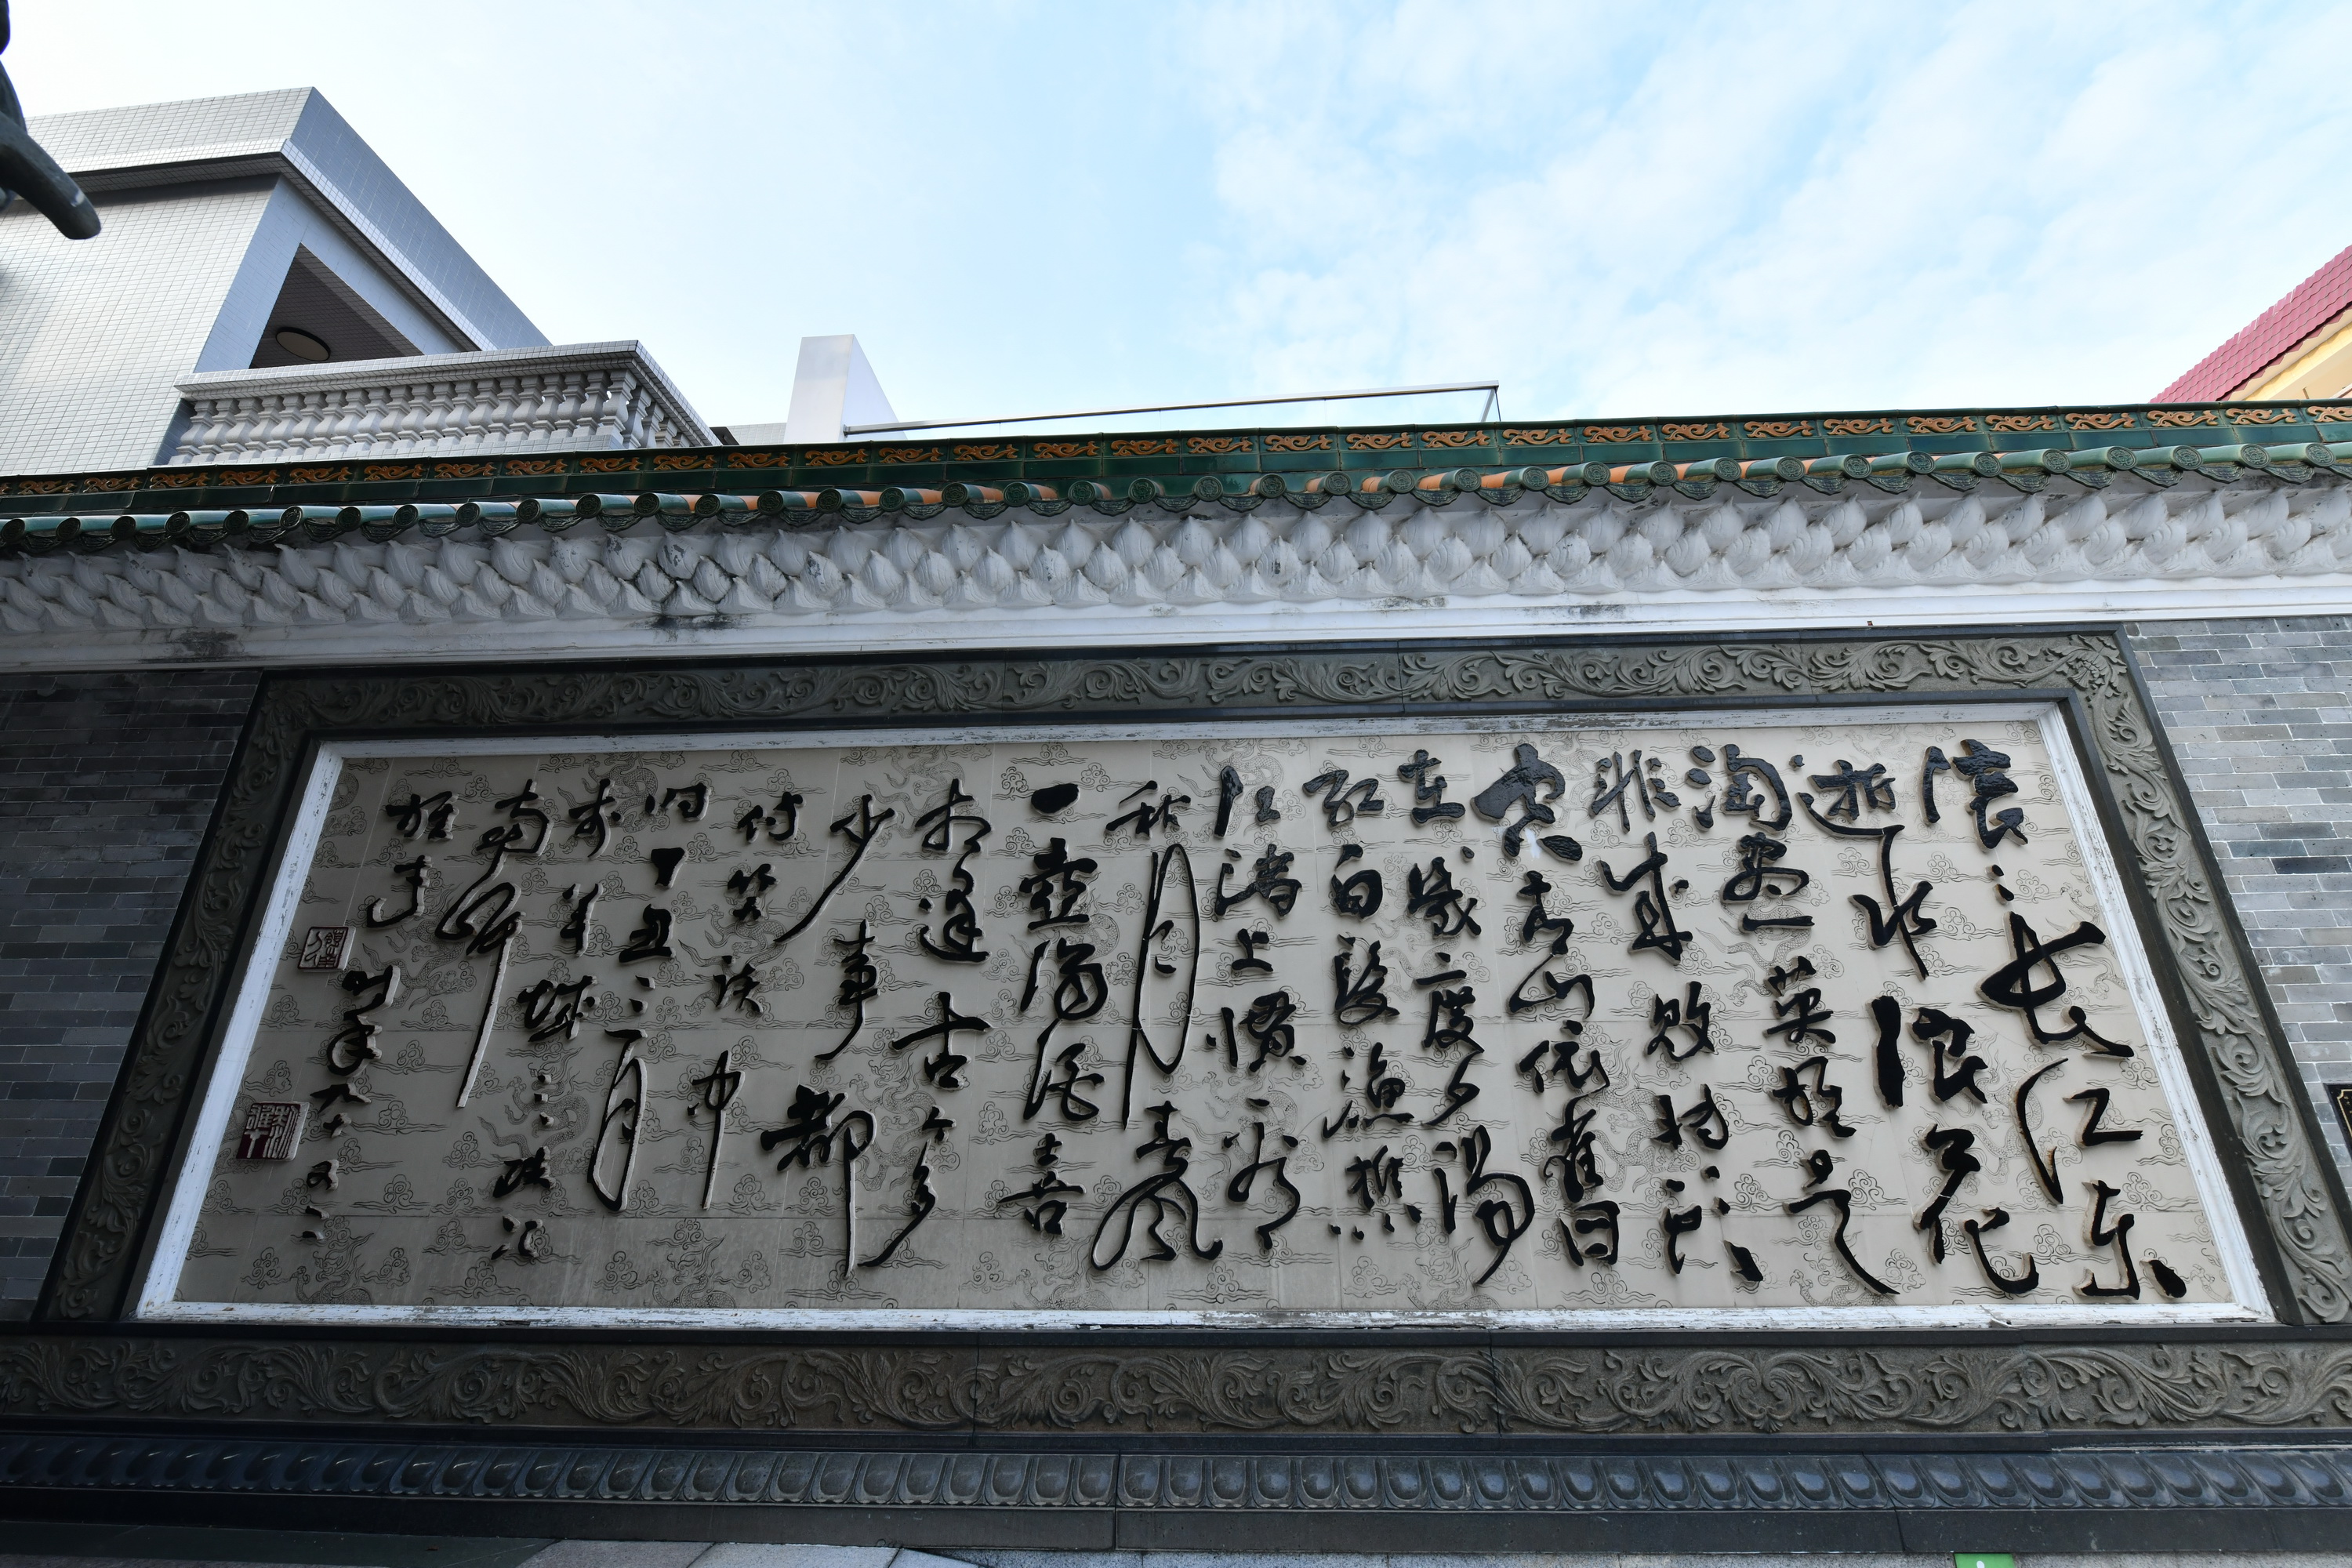 滚滚长江东
逝水浪花
淘尽英雄是
非成败转头
空青山依旧
在几度夕阳
红白发渔樵
江渚上惯看
秋月春风
一壶浊酒喜
相逢古今多
少事都
付笑谈中
时丁丑二月